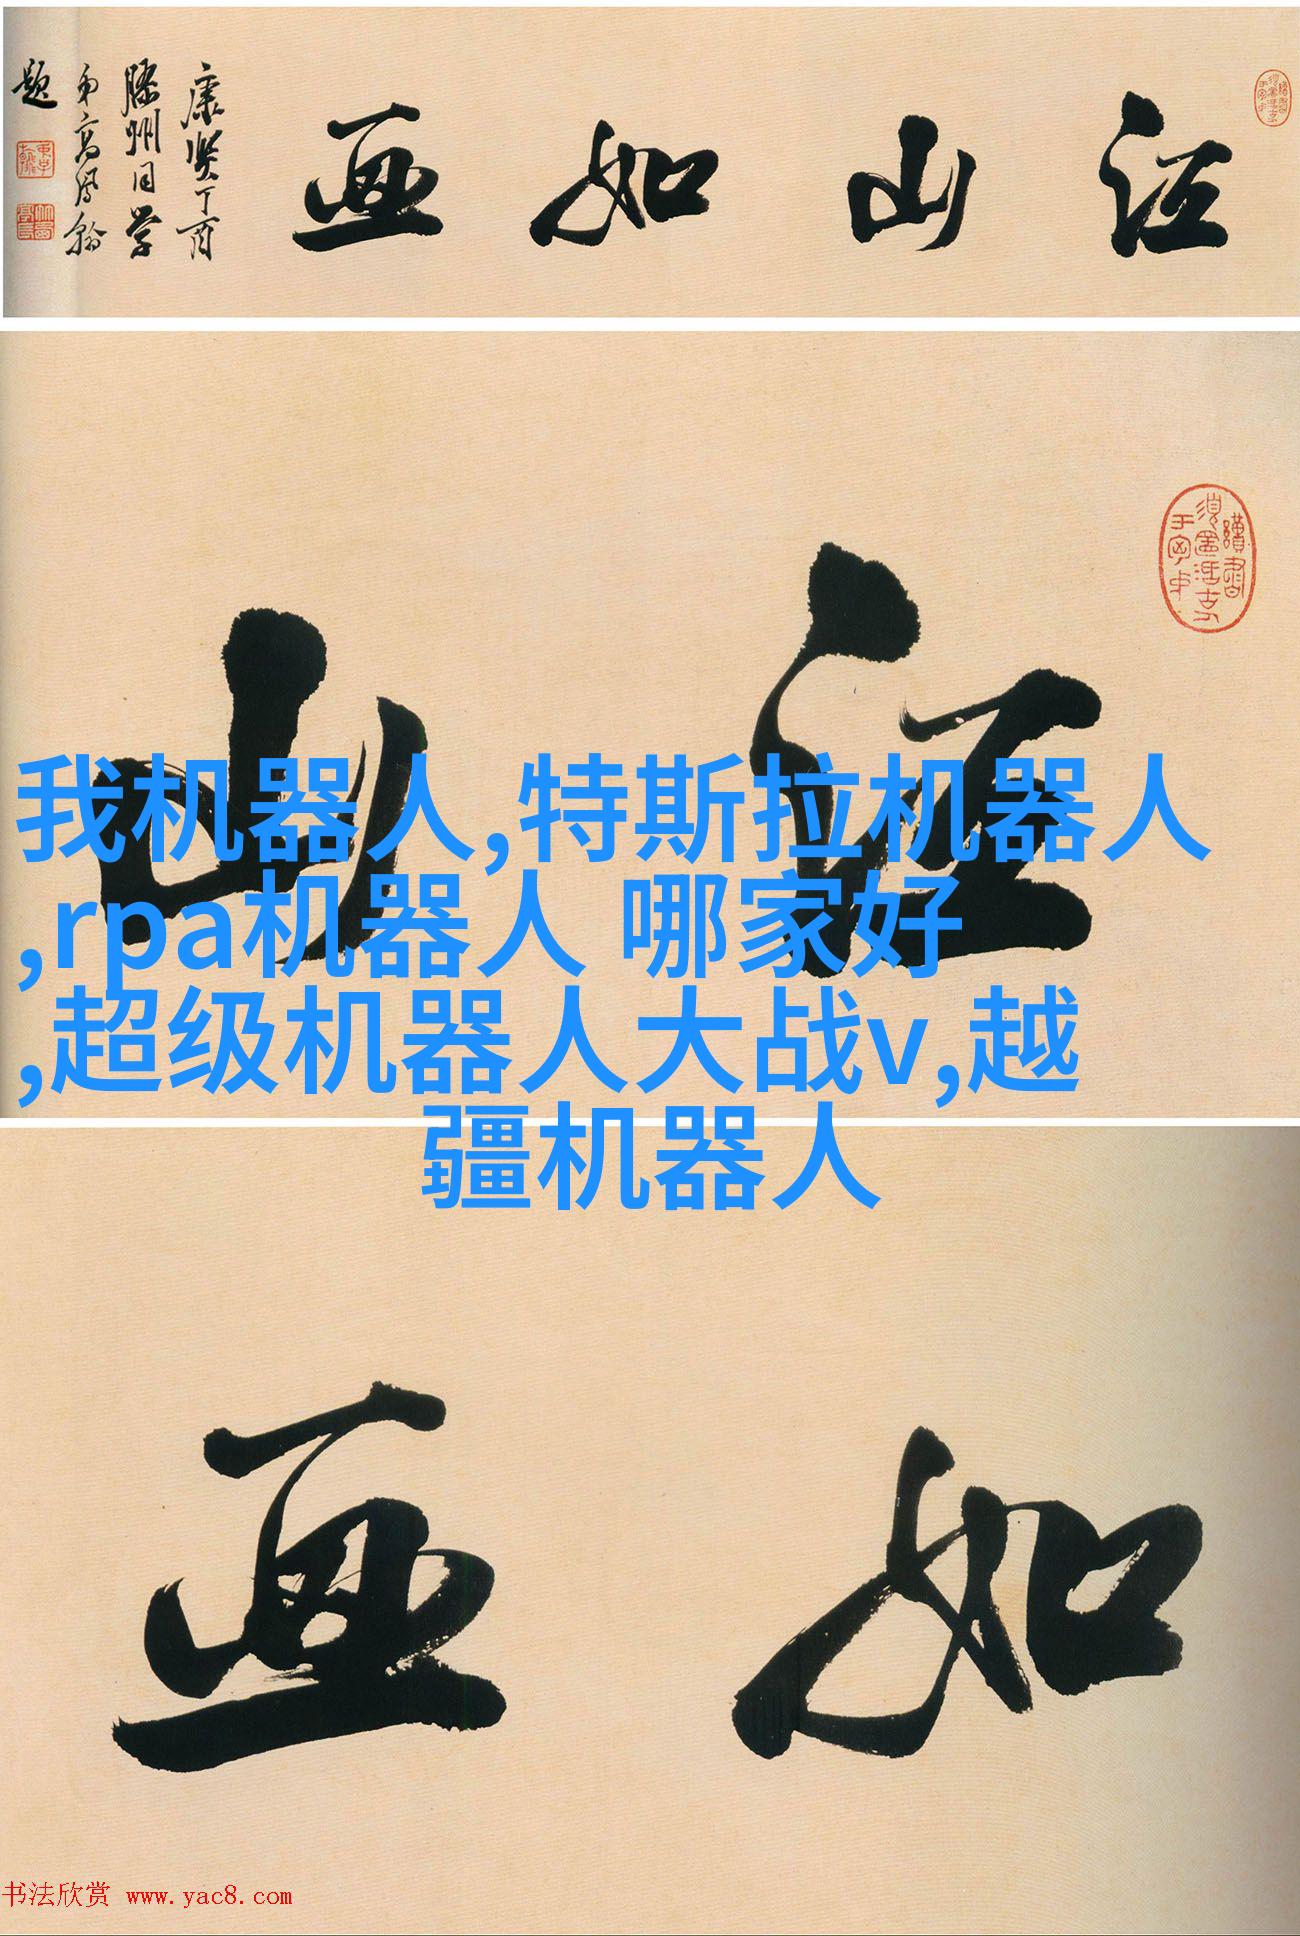 江山如画
康熙丁酉
滕州同学
弟高凤翰
题
江山
我机器人,特斯拉机器人
,rpa机器人 哪家好
,超级机器人大战v,越
疆机器人
如画
书法欣赏 www.yac8.com